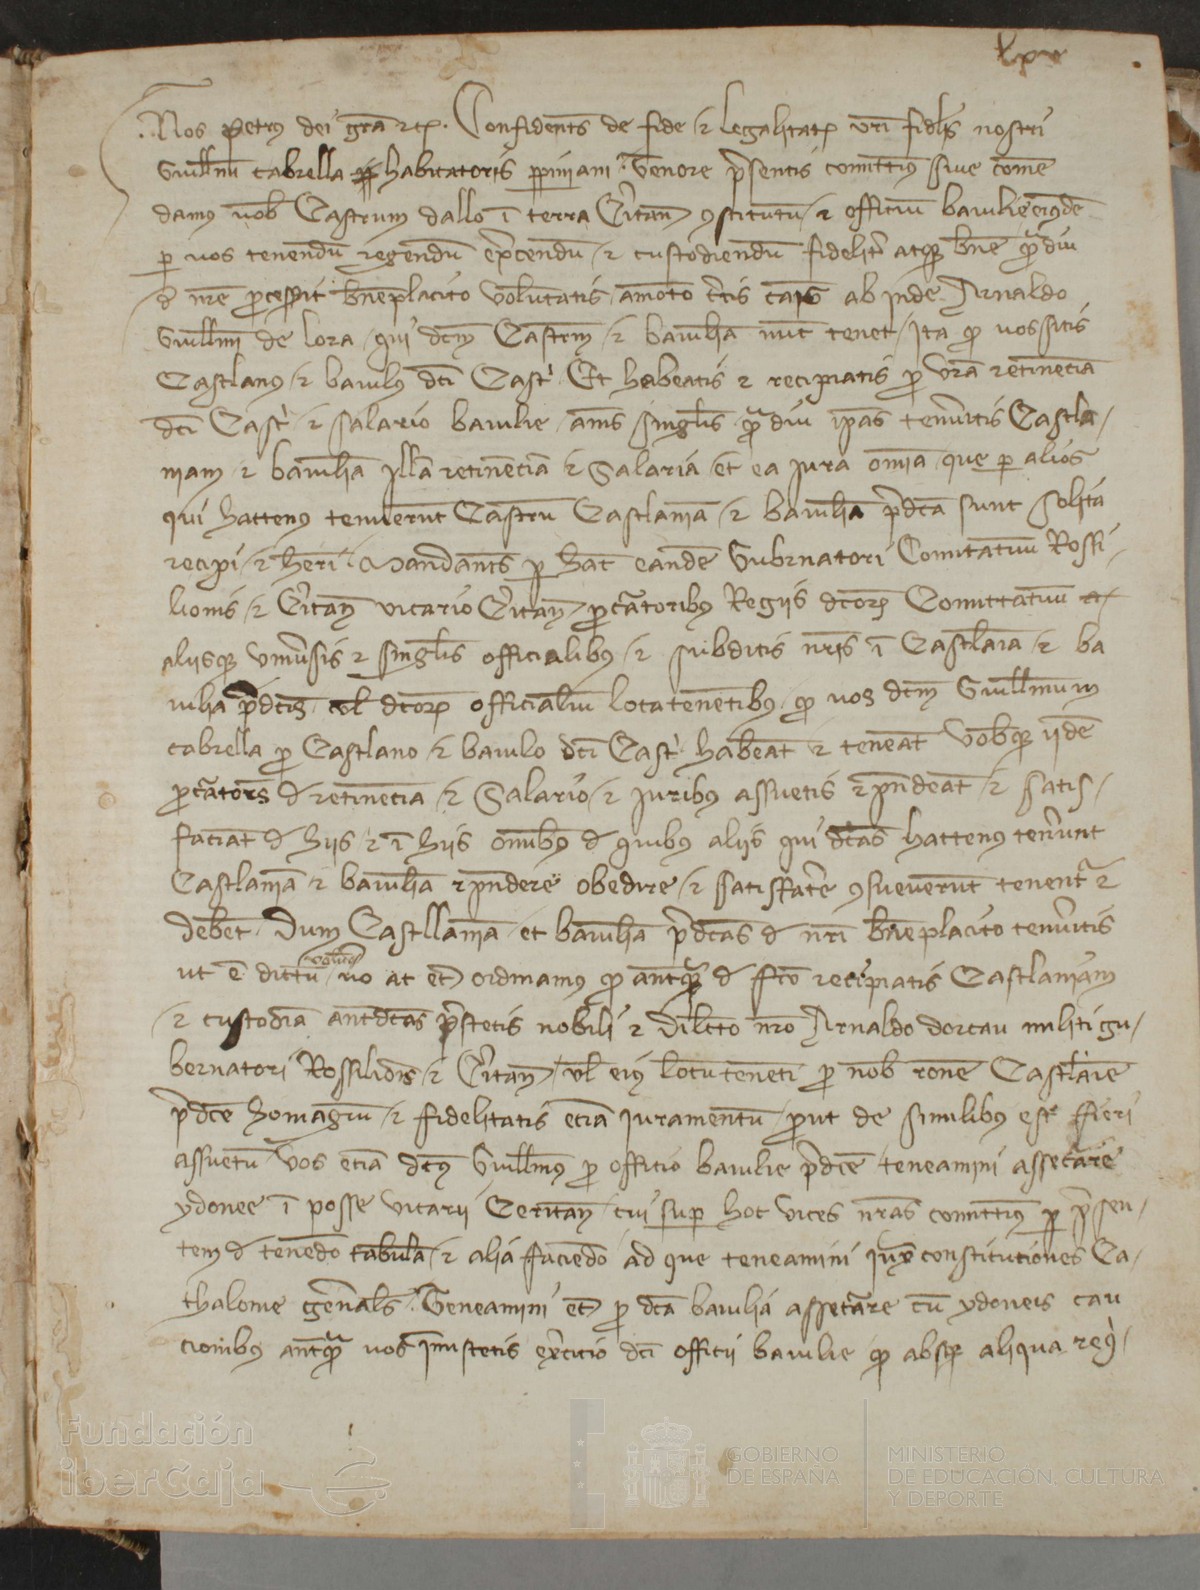 lxv
Nos Petrus dei gra etc. Confidents de fide et legalitate vri fidelis nostri
Guillmi cabrella habitatoris ppiniani Tenore psentis comittimus sive comen
damus vob Castrum dallo i terra Citan constitutu et officiu baiulie eiusde
p vos tenendu regendu excendu et custodiendu fidelit atque bne qdiu
d nre pcesserit bneplacito voluntatis amoto ab inde Arnaldo
Guillmi de lora qui dcm Castrm et baiulia nuc tenet Ita q vos sitis
Castlanus et baiulus dci Cast Et habeatis et recipiatis p vra retinencia
dci Cast et salario baiulie anis singlis qdiu ipas tenritis Castla
niam et baiulia illa retinencia et Salaria et ea iura omia que p alios
qui hactenus tenuerunt Castru Castlania et baiulia pdca sunt solita
recipi et heri Mandants p hac eande Gubrnatori Comitatuu Rossi
lionis et Citan vicario Citan pcatoribus Regiis dcor Comittatuu
aliisque univsis et singlis officialibus et subditis nris i Castlania et ba
iulia pdcis vl dcor officialiu locatenentibus q vos dcm Guillmum
cabrella p Castlano et baiulo dci Cast habeat et teneat Vobque iide
pcators d retinencia et Salario et iuribus assuetis rpndeat et satis
faciat d hiis et i hiis omibus d quibus aliis qui dcas hactenus tenrunt
Castlania et baiulia rpndere obedire et satisface consueverunt tenent et
debet Dum Castllania et baiulia pdcas d nri bneplacito tenritis
ut e dictu volumus vo ac et ordinamus q antq d fco recipiatis Castlaniam
et custodia antdcas pstetis nobili et dilcto nro Arnaldo dorcau militi gu
bernatori Rossilionis et Citan vl eius locuteneti p nob rone Castlanie
pdce homagiu et fidelitatis ecia iuramentu put de similibus est fieri
assuetu Vos ecia dcus Guillmus p officio baiulie pdce teneamini assecare
ydonee i posse vicarii Ceritan cui sup hoc vices nras comittimus p psen
tem d tenedo tabula et alia faciedo ad que teneamini iux constituciones Ca
thalonie genals Teneamini et p dca baiulia assecare cu ydoneis cau
cionibus antq vos imistetis excicio dci officii baiulie q absque aliqua req
Fundación
iberCaja
GOBIERNO
DE ESPAÑA
MINISTERIO
DE EDUCACIÓN, CULTURA
Y DEPORTE